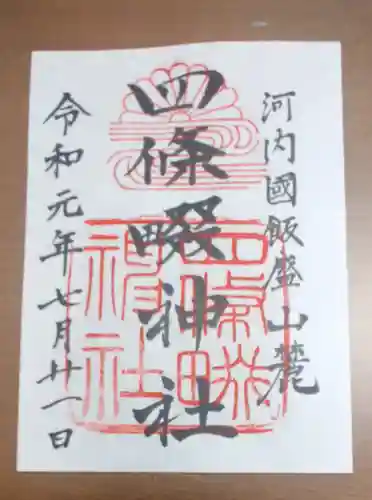 河内國飯盛山麓
四條畷神社
令和元年七月廿一日
四條畷神社